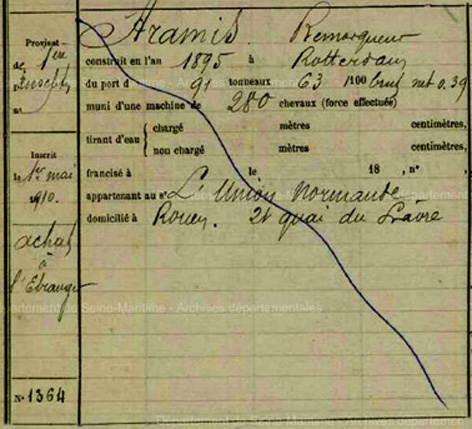 Aramis Remorqueur
Provient
de 1ère
construit en l'an 1895 à Rotterdam
Inscript.
du port d 91 tonneaux 63 /100 brut net 0.39
n°
muni d'une machine de 280 chevaux (force effectuée)
tirant d'eau { chargé mètres centimètres,
non chargé mètres centimètres,
Inscrit
le 1er mai
1910.
francisé à le 18 , n° .
appartenant au sr L'Union Normande
domicilié à Rouen. 21 quai du Havre
achat
à
l'Etranger
Département de Seine-Maritime - Archives départementales
N° 1364
Département de Seine-Maritime - Archives départementales